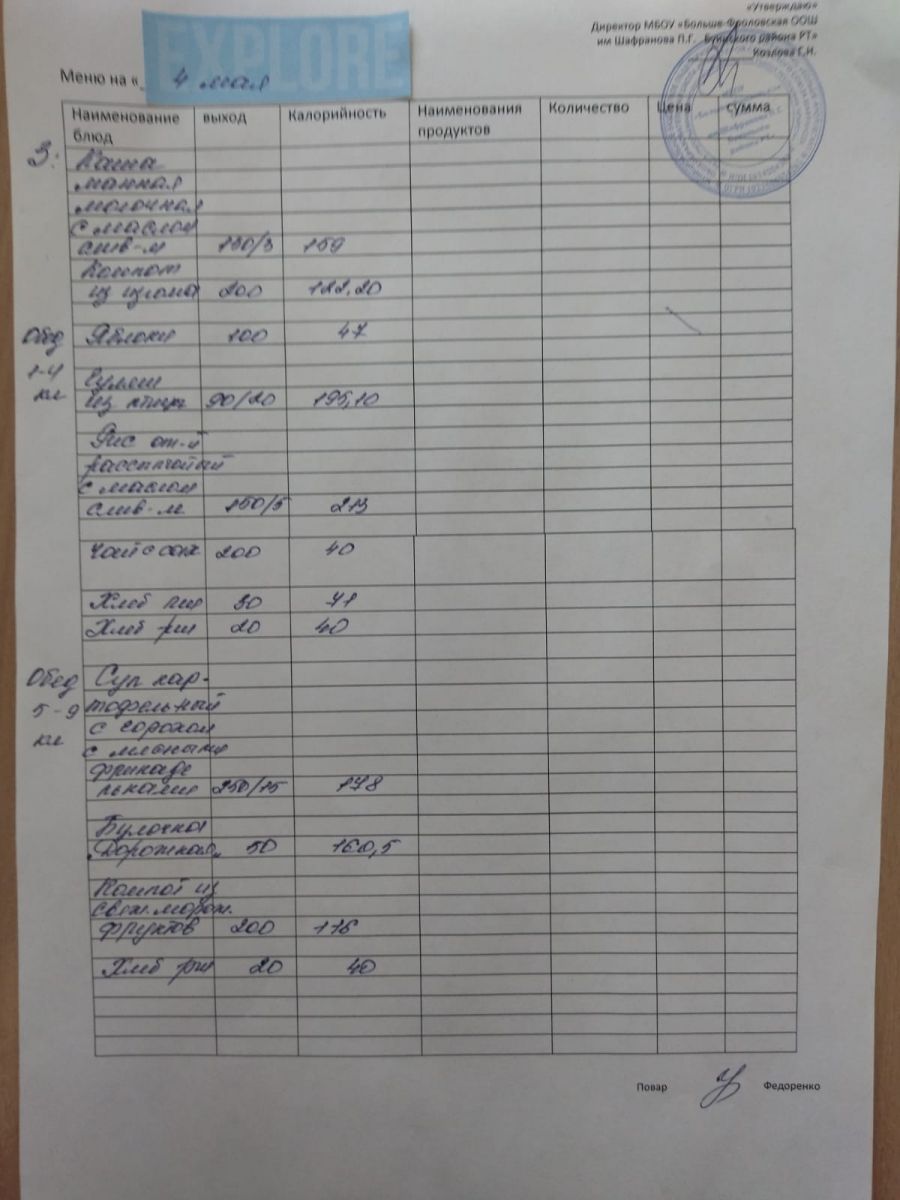 «Утверждаю»
Директор МБОУ «Больше-Фроловская ООШ
им Шафранова П.Г. Буинского района РТ»
Козлова Г.И.
EXPLORE
Меню на «
4 мая
Наименование блюд выход Калорийность Наименования продуктов Количество Цена сумма
З: Каша
манная
молочная
с маслом
слив-м 150/3 159
Компот
из изюма 200 122,20
Обед Яблоки 100 47
1-4 Гуляш
кл из птицы 90/20 195,10
Рис от-й
рассыпчатый
с маслом
слив-м 150/5 213
Чай с сах 200 40
Хлеб пш 30 71
Хлеб рж 20 40
Обед Суп кар-
5-9 тофельный
с горохом
кл с мясными
фрикаде
льками 250/15 178
Булочка
„Дорожная„ 50 160,5
Компот из
свеж.морож.
фруктов 200 116
Хлеб рж 20 40
Повар Федоренко